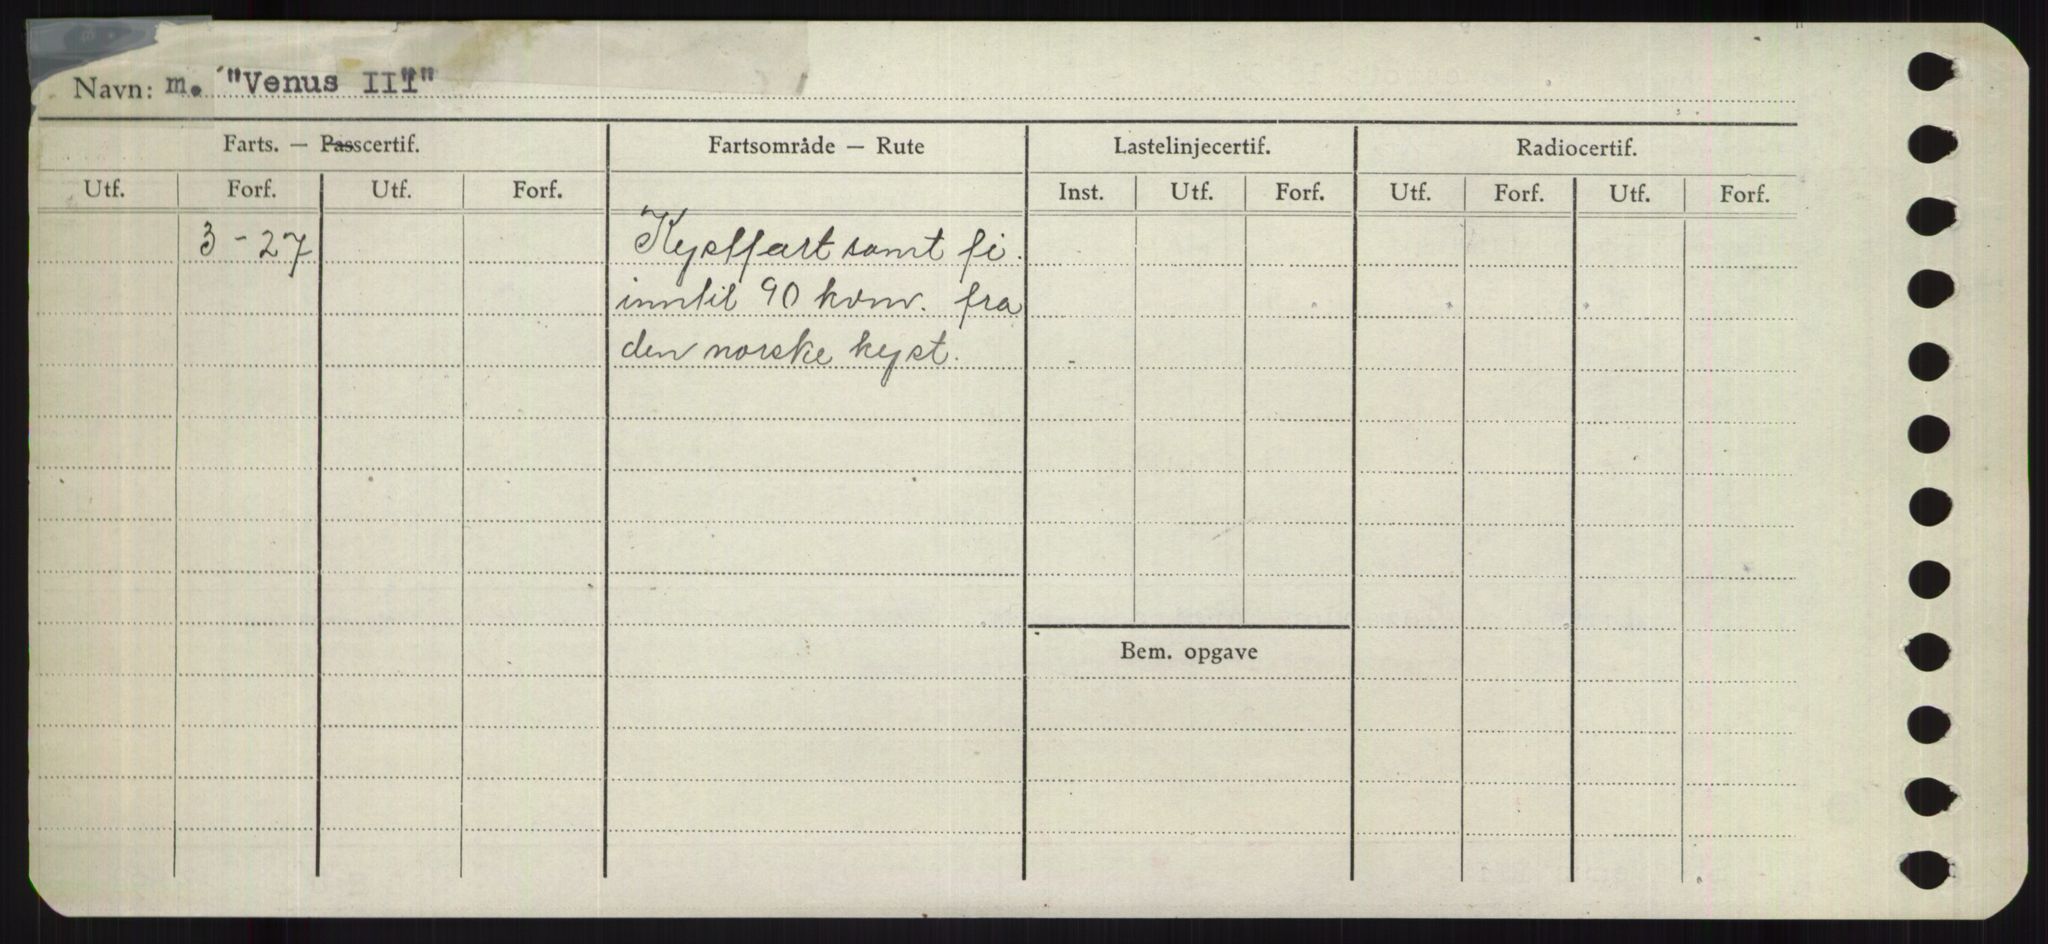 Navn: m. "Venus III"
Farts. — Passcertif. Fartsområde — Rute Lastelinjecertif. Radiocertif.
Utf. Forf. Utf. Forf. Inst. Utf. Forf. Utf. Forf. Utf. Forf.
3-27 Kystfart samt fi.
inntil 90 kvm. fra
den norske kyst.
Bem. opgave